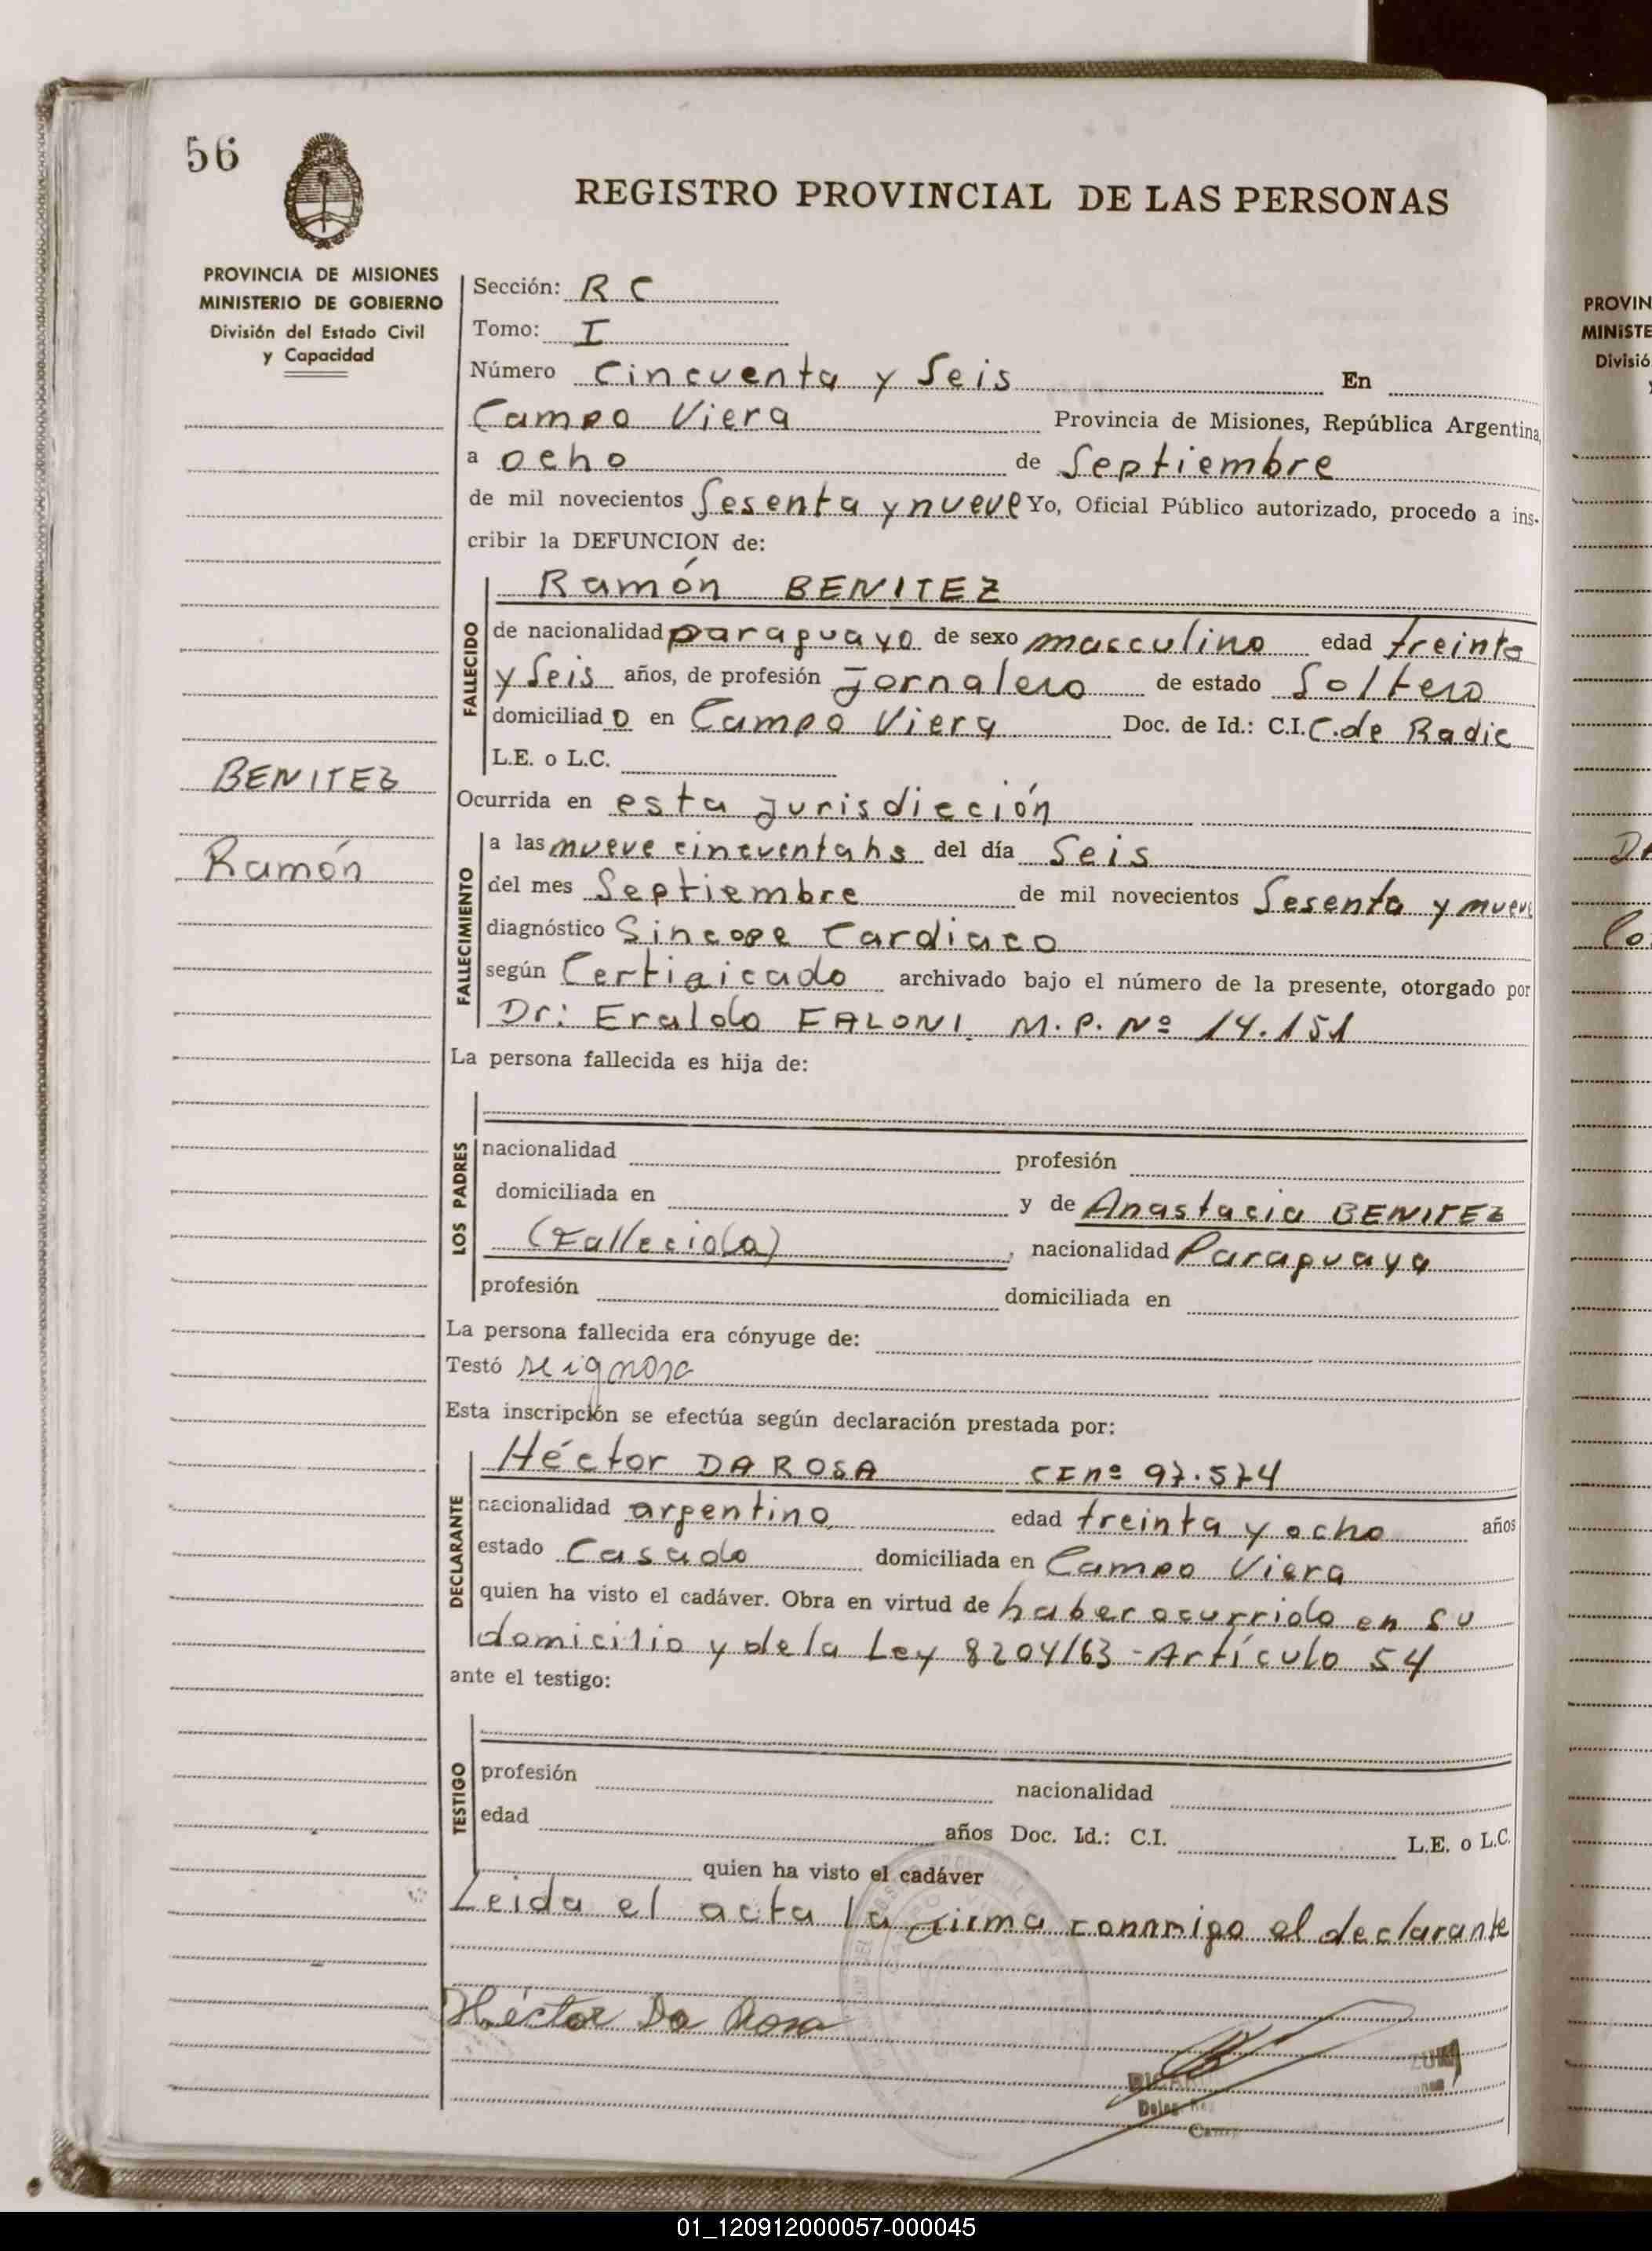 56
REGISTRO PROVINCIAL DE LAS PERSONAS
PROVINCIA DE MISIONES
MINISTERIO DE GOBIERNO
División del Estado Civil
y Capacidad
Sección: R C
Tomo: I
Número Cincuenta y Seis En
Campo Viera Provincia de Misiones, República Argentina,
a ocho de Septiembre
de mil novecientos Sesenta y nueve Yo, Oficial Público autorizado, procedo a ins-
cribir la DEFUNCION de:
Ramón BENITEZ
FALLECIDO
de nacionalidad paraguayo de sexo masculino edad treinta
y Seis años, de profesión Jornalero de estado Soltero
domiciliad o en Campo Viera Doc. de Id.: C.I. C.de Radic
L.E. o L.C.
BENITEZ
Ramón
Ocurrida en esta Jurisdicción
FALLECIMIENTO
a las nueve cincuenta hs del día Seis
del mes Septiembre de mil novecientos Sesenta y nueve
diagnóstico Sincope Cardiaco
según Certificado archivado bajo el número de la presente, otorgado por
Dr: Eraldo FALONI M.P. Nº 14.151
La persona fallecida es hija de:
LOS PADRES
nacionalidad profesión
domiciliada en y de Anastacia BENITEZ
(Fallecida), nacionalidad Paraguaya
profesión domiciliada en
La persona fallecida era cónyuge de:
Testó se ignora
Esta inscripción se efectúa según declaración prestada por:
Héctor DA ROSA CI nº 97.574
DECLARANTE
nacionalidad argentino edad treinta y ocho años
estado Casado domiciliada en Campo Viera
quien ha visto el cadáver. Obra en virtud de haber ocurrido en su
domicilio y de la Ley 8204/63 - Artículo 54
ante el testigo:
TESTIGO
profesión nacionalidad
edad años Doc. Id.: C.I. L.E. o L.C.
quien ha visto el cadáver
Leida el acta la firma conmigo el declarante
Héctor Da Rosa
PROVIN
MINISTE
Divisió
01_120912000057-000045